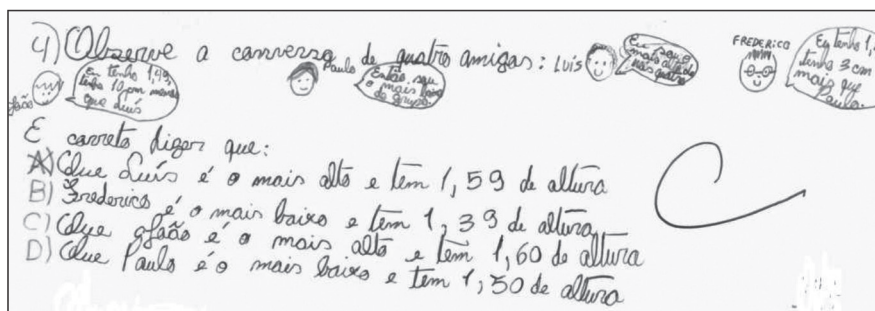 4) Observe a conversa de quatro amigos:
João
Eu tenho 1,49, tenho 10 cm menos que Luís
Paulo
Então, sou o mais baixo do grupo.
Luís
Eu sou o mais alto de nós quatro
FREDERICO
Eu tenho 1,4
tenho 3 cm
mais que
Paulo.
É correto dizer que:
A) Que Luís é o mais alto e tem 1,59 de altura
B) Frederico é o mais baixo e tem 1,39 de altura
C) Que João é o mais alto e tem 1,60 de altura
D) Que Paulo é o mais baixo e tem 1,50 de altura